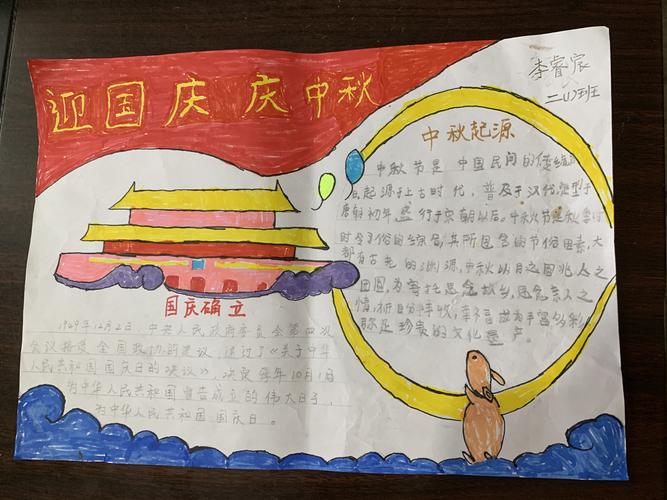 迎国庆 庆中秋
李睿宸
二(1)班
中秋起源
中秋节是中国民间的传统
起源于上古时代，普及于汉代，定型于
唐朝初年，盛行于宋朝以后。中秋节是秋季
时令习俗的综合，其所包含的节俗因素，大
都有古老的渊源，中秋以月之圆兆人之
团圆，为寄托思念故乡，思念亲人之
情，祈盼丰收，幸福，成为丰富多彩
弥足珍贵的文化遗产。
国庆确立
1949年12月2日，中央人民政府委员会第四次
会议接受全国政协的建议，通过了《关于中华
人民共和国国庆日的决议》，决定每年10月1日
为中华人民共和国宣告成立的伟大日子，
为中华人民共和国国庆日。